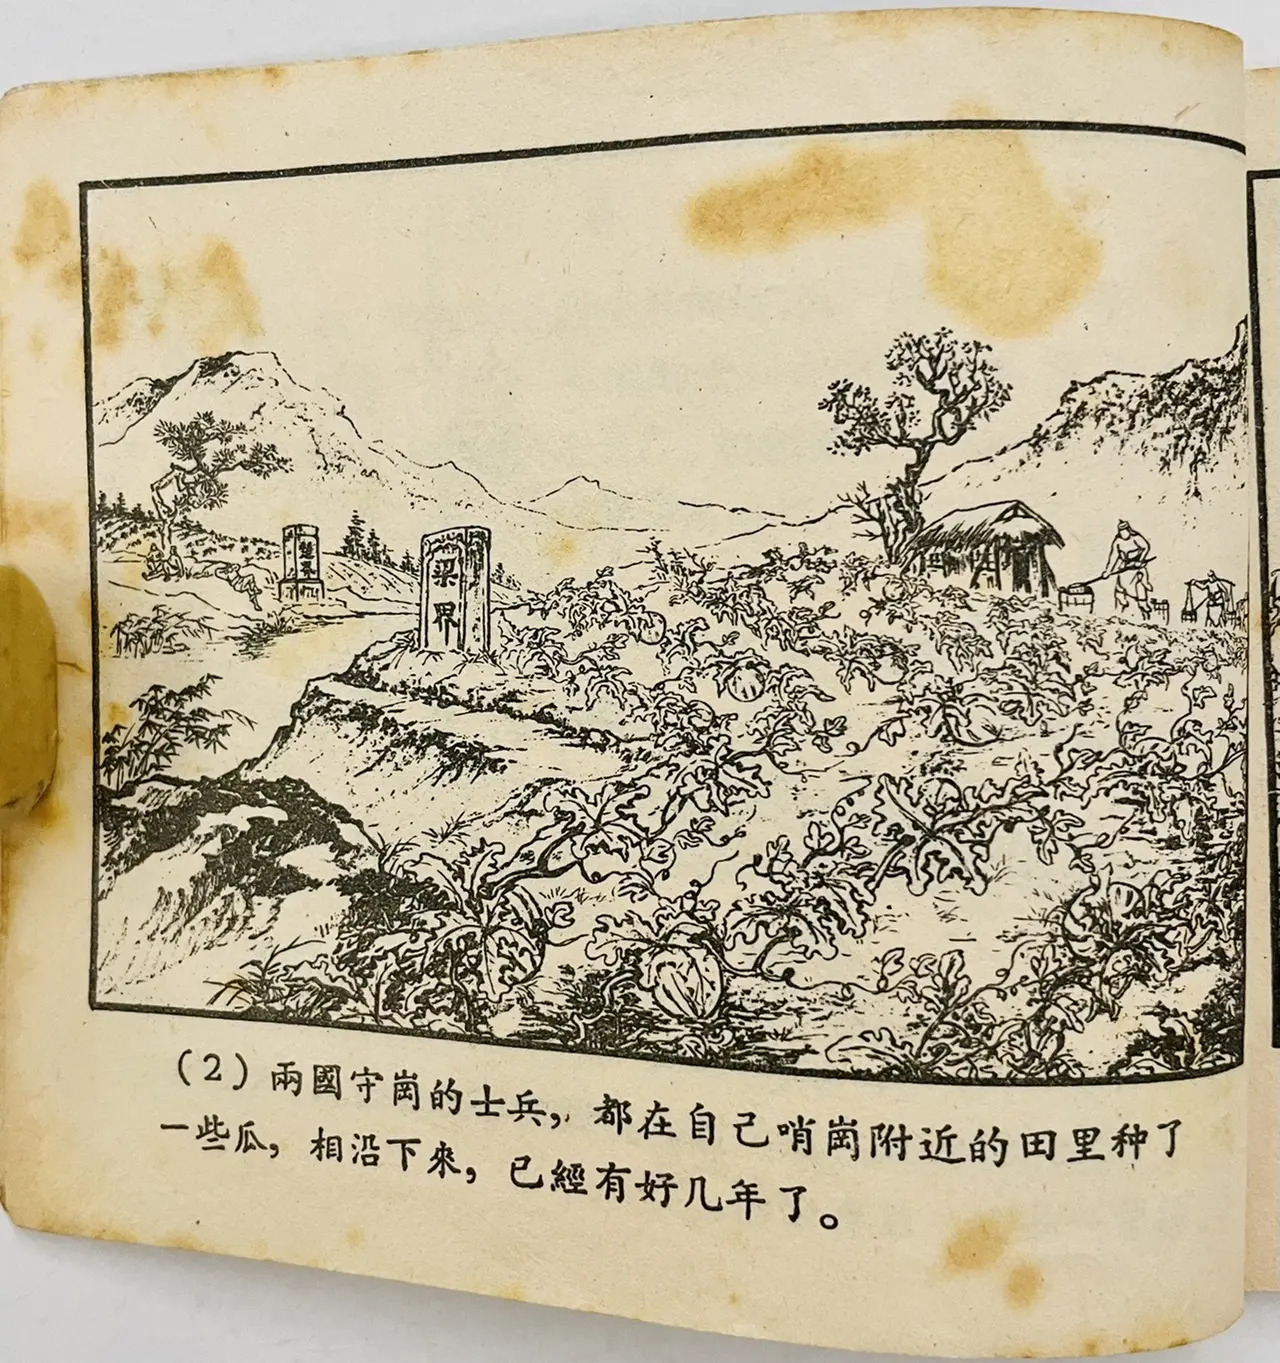 楚界
梁界
(2) 兩國守崗的士兵，都在自己哨崗附近的田里种了
一些瓜，相沿下來，已經有好几年了。